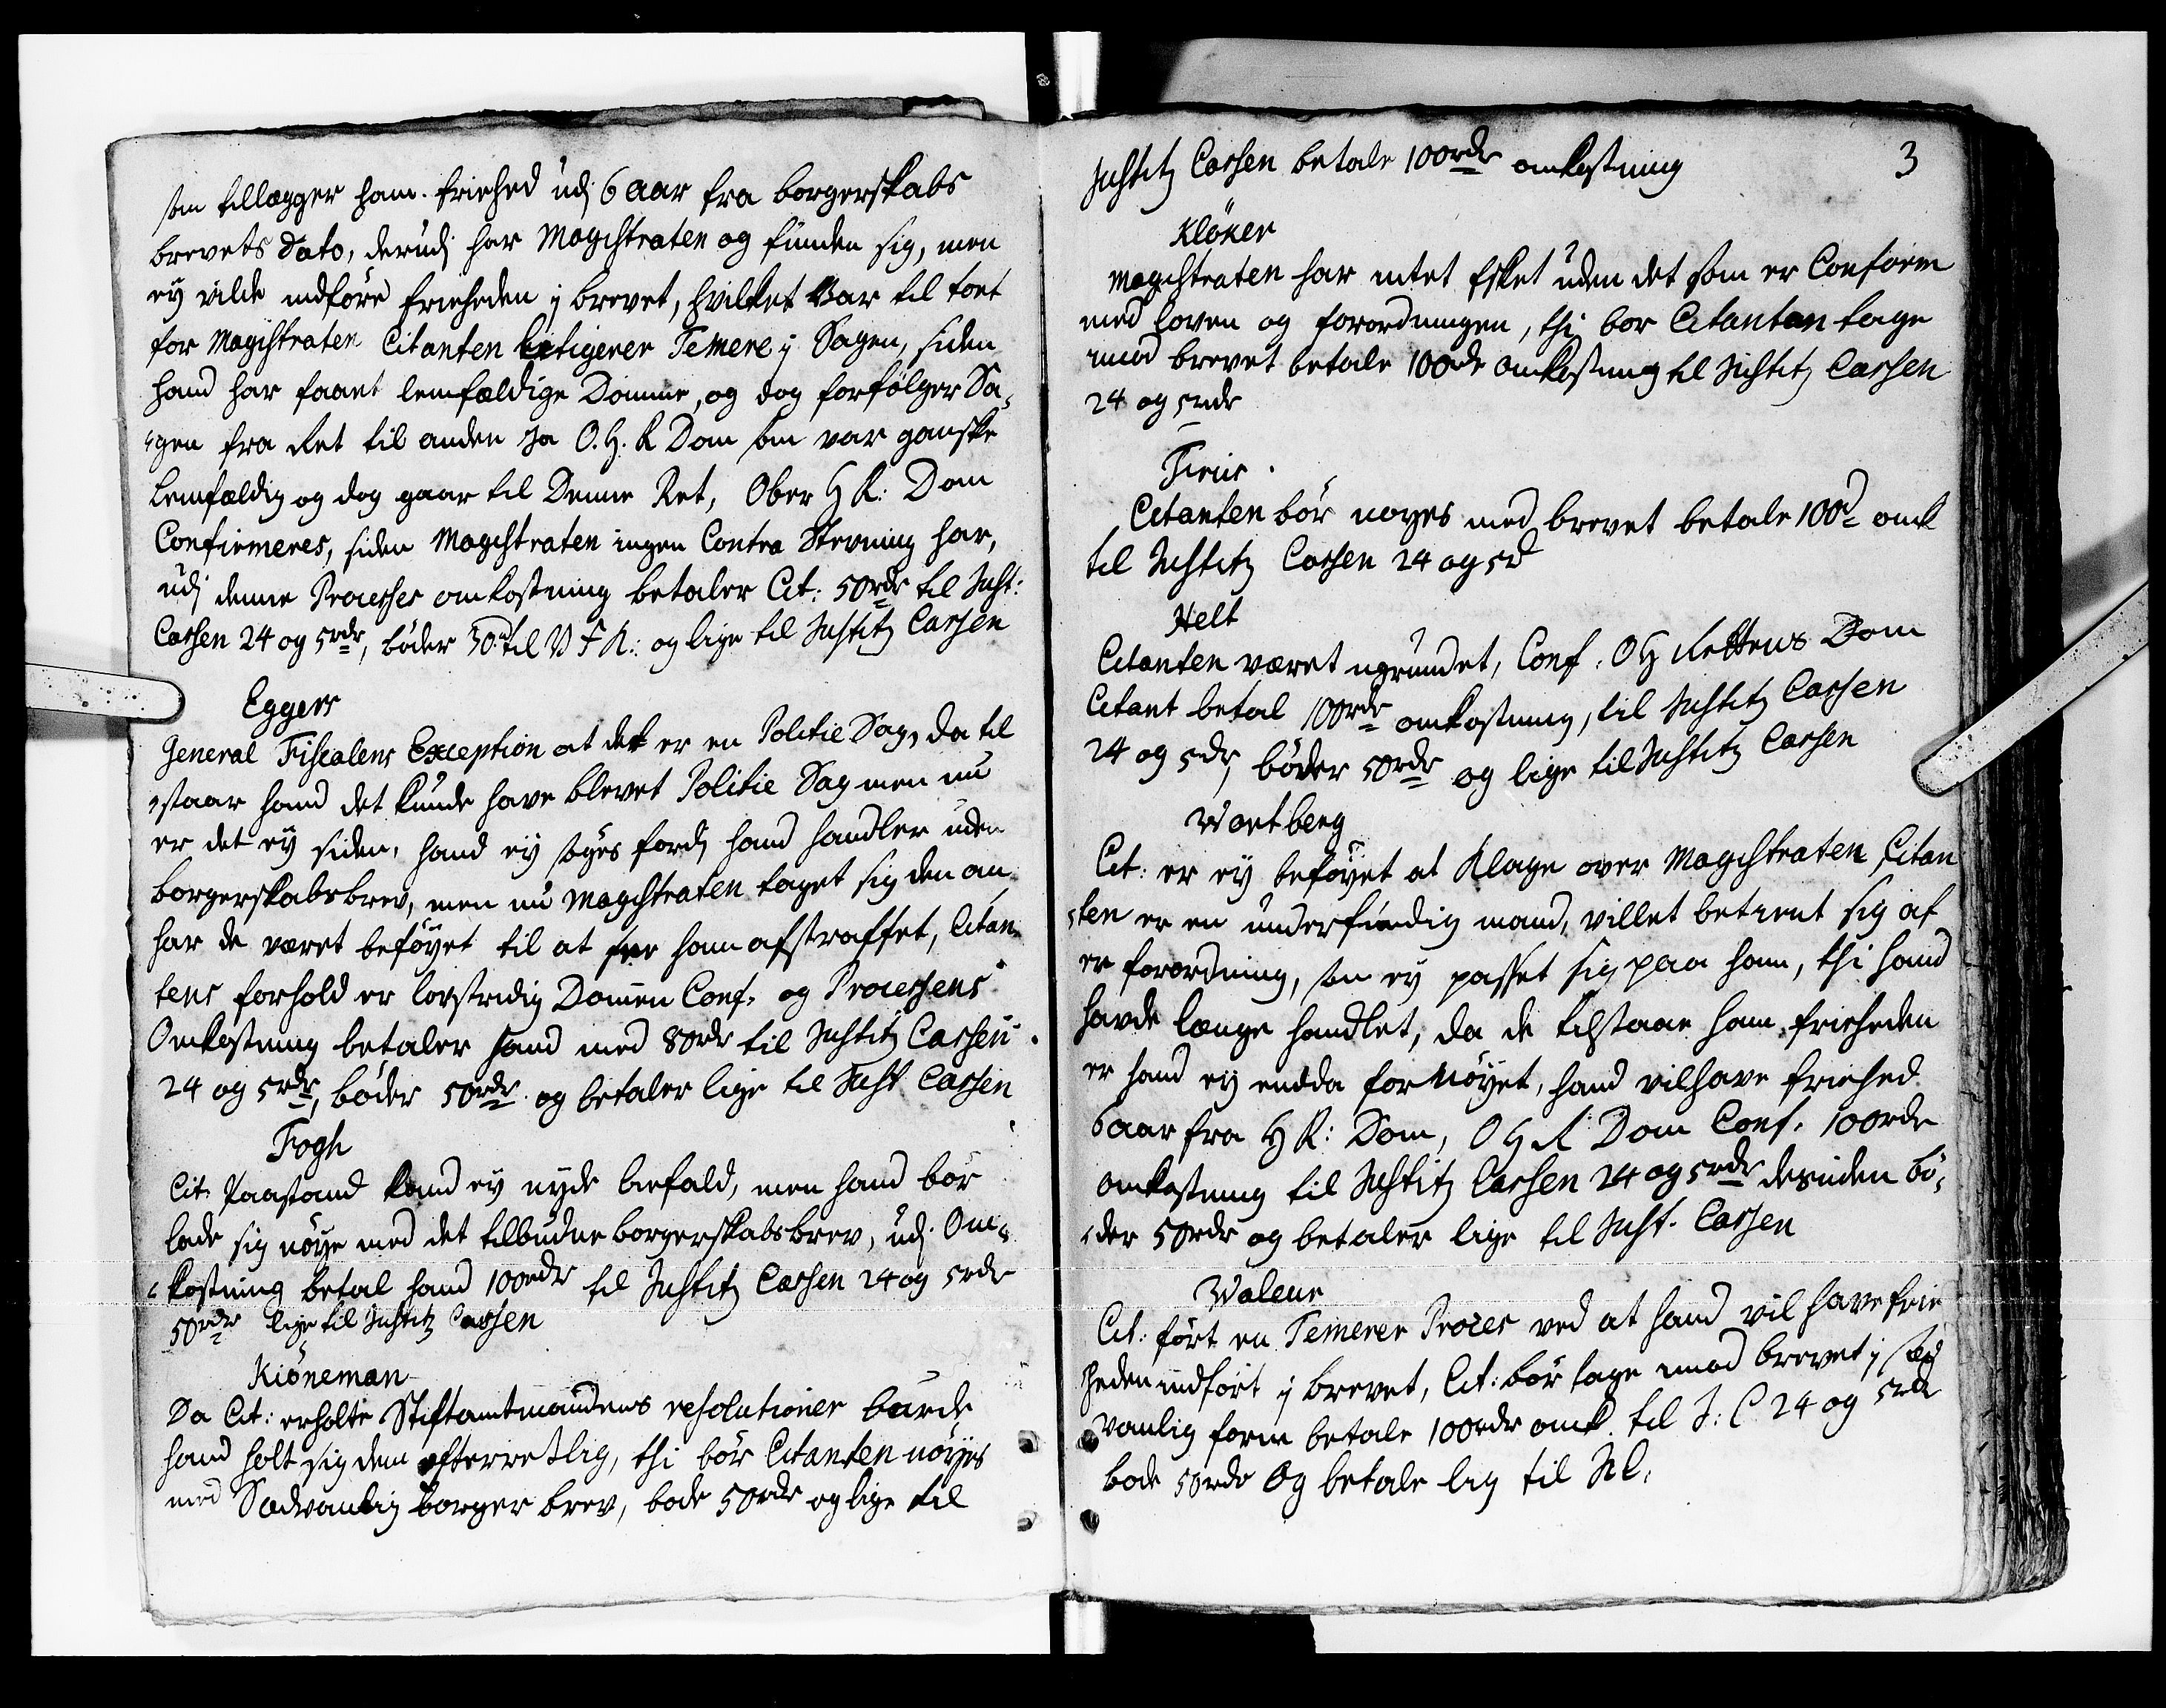 som tillægger ham friehed udj 6 aar fra borgerskabs
brevets Dato, derudj har Magistraten og funden sig, men
ey vilde indföre frieheden j brevet, hvilket var til fort
for Magistraten Citanten litigerer Temere j Sagen, siden
hand har faaet lemfældige Domme, og dog forfølger Sa-
gen fra Ret til anden Ja O. H. R Dom som var ganske
lemfældig og dog gaar til Denne Ret, Ober H R: Dom
Confirmeres, siden Magistraten ingen Contra Stevning har,
udj denne Processes omkostning betaler Cit: 50rdr til Just:
Cassen 24 og 5rdr, bøder 30 til V F K: og lige til Justitz Cassen
Eggers
General Fiscalens Exception at det er en Politie Sag, da til
staar hand det kunde have blevet Politie Sag men nu
er det ey siden, hand ey søges fordj hand handler uden
borgerskabsbrev, men nu Magistraten taget sig den an
har de været beföyet til at see ham afstraffet, Citan-
tens forhold er lovstridig Dommen Conf. og Processens
Omkostning betaler hand med 80rdr til Justitz Cassen
24 og 5rdr, bøder 50rdr og betaler lige til Just Cassen
Fogh
Cit: Paastand kand ey nyde biefald, men hand bör
lade sig nöye med det tilbudne borgerskabsbrev, udj Om-
kostning betal hand 100rdr til Justitz Cassen 24 og 5rdr
50rdr lige til Justitz Cassen
Kiöneman
Da Cit: erholte Stiftamtmandens resolutioner burde
hand holt sig dem efterretlig, thi bör Citanten nöyes
med Sædvanlig borger brev, bøde 50rdr og lige til
3
Justitz Cassen betale 100rdr omkostning
Klöker
Magistraten har intet skeet uden det som er Conform
med Loven og forordningen, thi bor Citanten tage
imod brevet betale 100rdr omkostning til Justitz Cassen
24 og 5rdr
Citanten bör noyes med brevet betale 100d omk
til Justitz Cassen 24 og 5d
Helt
Citanten været ugrundet, Conf. O H Rettens Dom
Citant betal 100rdr omkostning, til Justitz Cassen
24 og 5dr, bøder 50rdr og lige til Justitz Cassen
Wartberg
Cit: er ey beföyet at Klage over Magistraten, Citan
ten er en underfundig mand, villet betient sig af
en forordning, som ey passet sig paa ham, thi hand
havde længe handlet, da de tilstaar ham frieheden
er hand ey endda fornöyet, hand vil have friehed
6 aar fra H R: Dom, O H R Dom Conf. 100rdr
omkostning til Justitz Cassen 24 og 5rdr desuden bö-
der 50rdr og betaler lige til Just. Cassen
Walene
Cit: fört en Temerer Proces ved at hand vil have frie
heden indfört j brevet, Cit: bör tage imod brevet j sæd
vanlig form betale 100rdr omk. til J: C 24 og 5rdr
bøde 50rdr Og betale lig til J C.